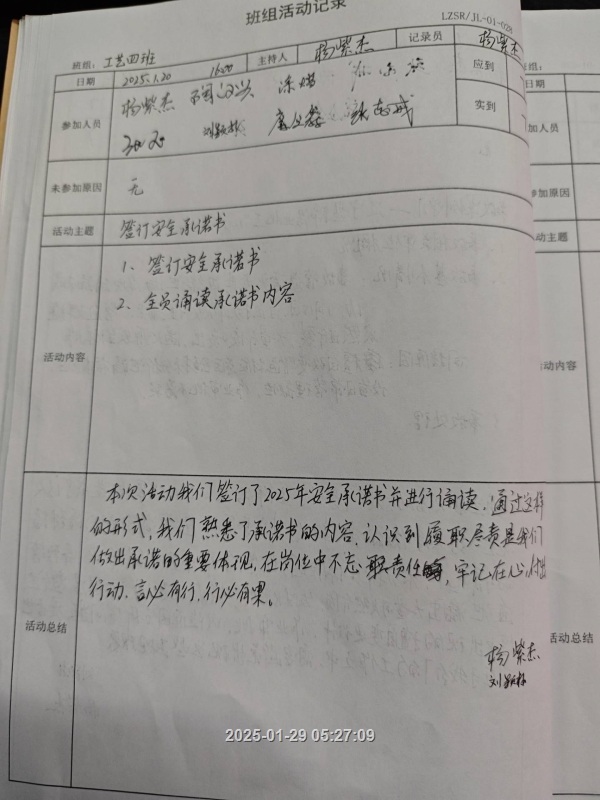 班组活动记录
LZSR/JL-01-028
班组：工艺四班
日期 2025.1.20 16:00 主持人 杨紫杰 记录员 杨紫杰 应到
参加人员 杨紫杰
实到
未参加原因 无
活动主题 签订安全承诺书
活动内容
1、签订安全承诺书
2、全员诵读承诺书内容
本次活动我们签订了2025年安全承诺书并进行诵读，通过这样
的形式，我们熟悉了承诺书的内容，认识到履职尽责是我们
做出承诺的重要体现，在岗位中不忘职责任，牢记在心，付出
行动，言必有行，行必有果。
活动总结
杨紫杰
班组：
日期
加人员
参加原因
动主题
活动内容
活动总结
2025-01-29 05:27:09